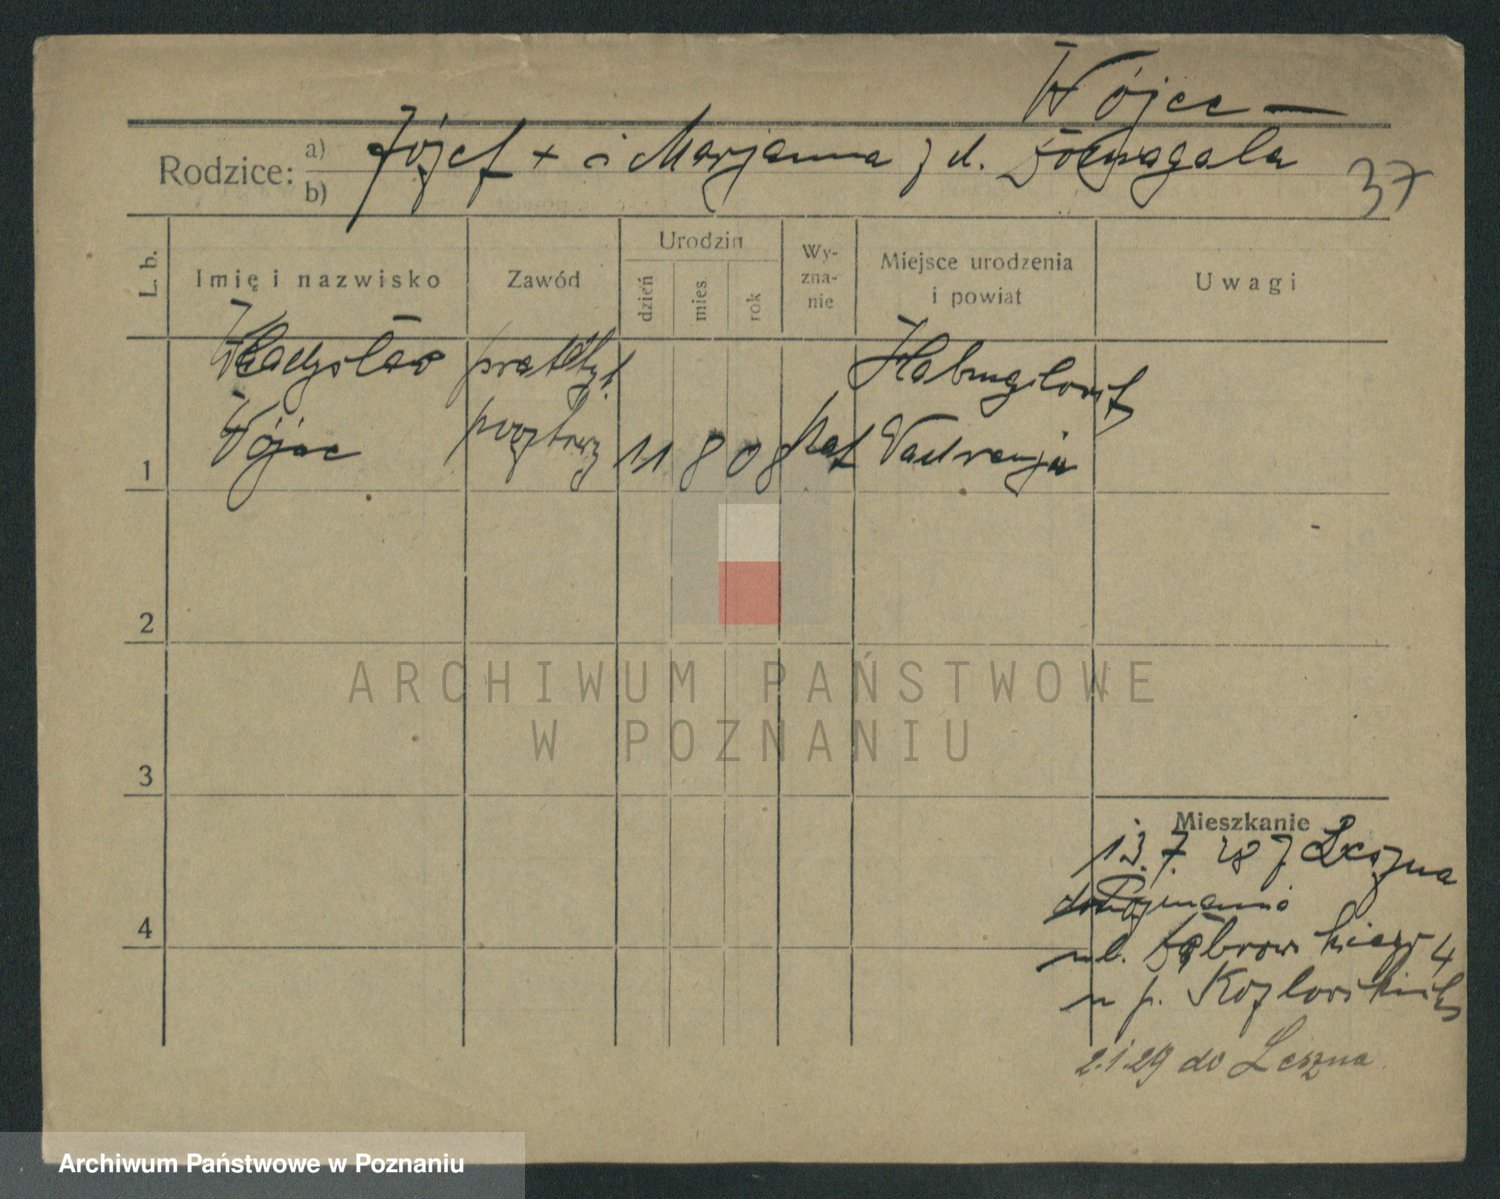 Wójce
Rodzice: a) b) Józef + i Marjanna z d.
37
L. b.
Imię i nazwisko
Zawód
Urodzin
dzień
mies
rok
Wy-
zna-
nie
Miejsce urodzenia
i powiat
Uwagi
Władysław praktyk.
Wójce pocztowy 11 8 08 kat
1
2
3
4
Mieszkanie
13. 7. 28 z Leszna
do Poznania
ul. Dąbrowskiego 4
u p. Kozlowskich
2.1.29 do Leszna
ARCHIWUM PAŃSTWOWE
W POZNANIU
Archiwum Państwowe w Poznaniu